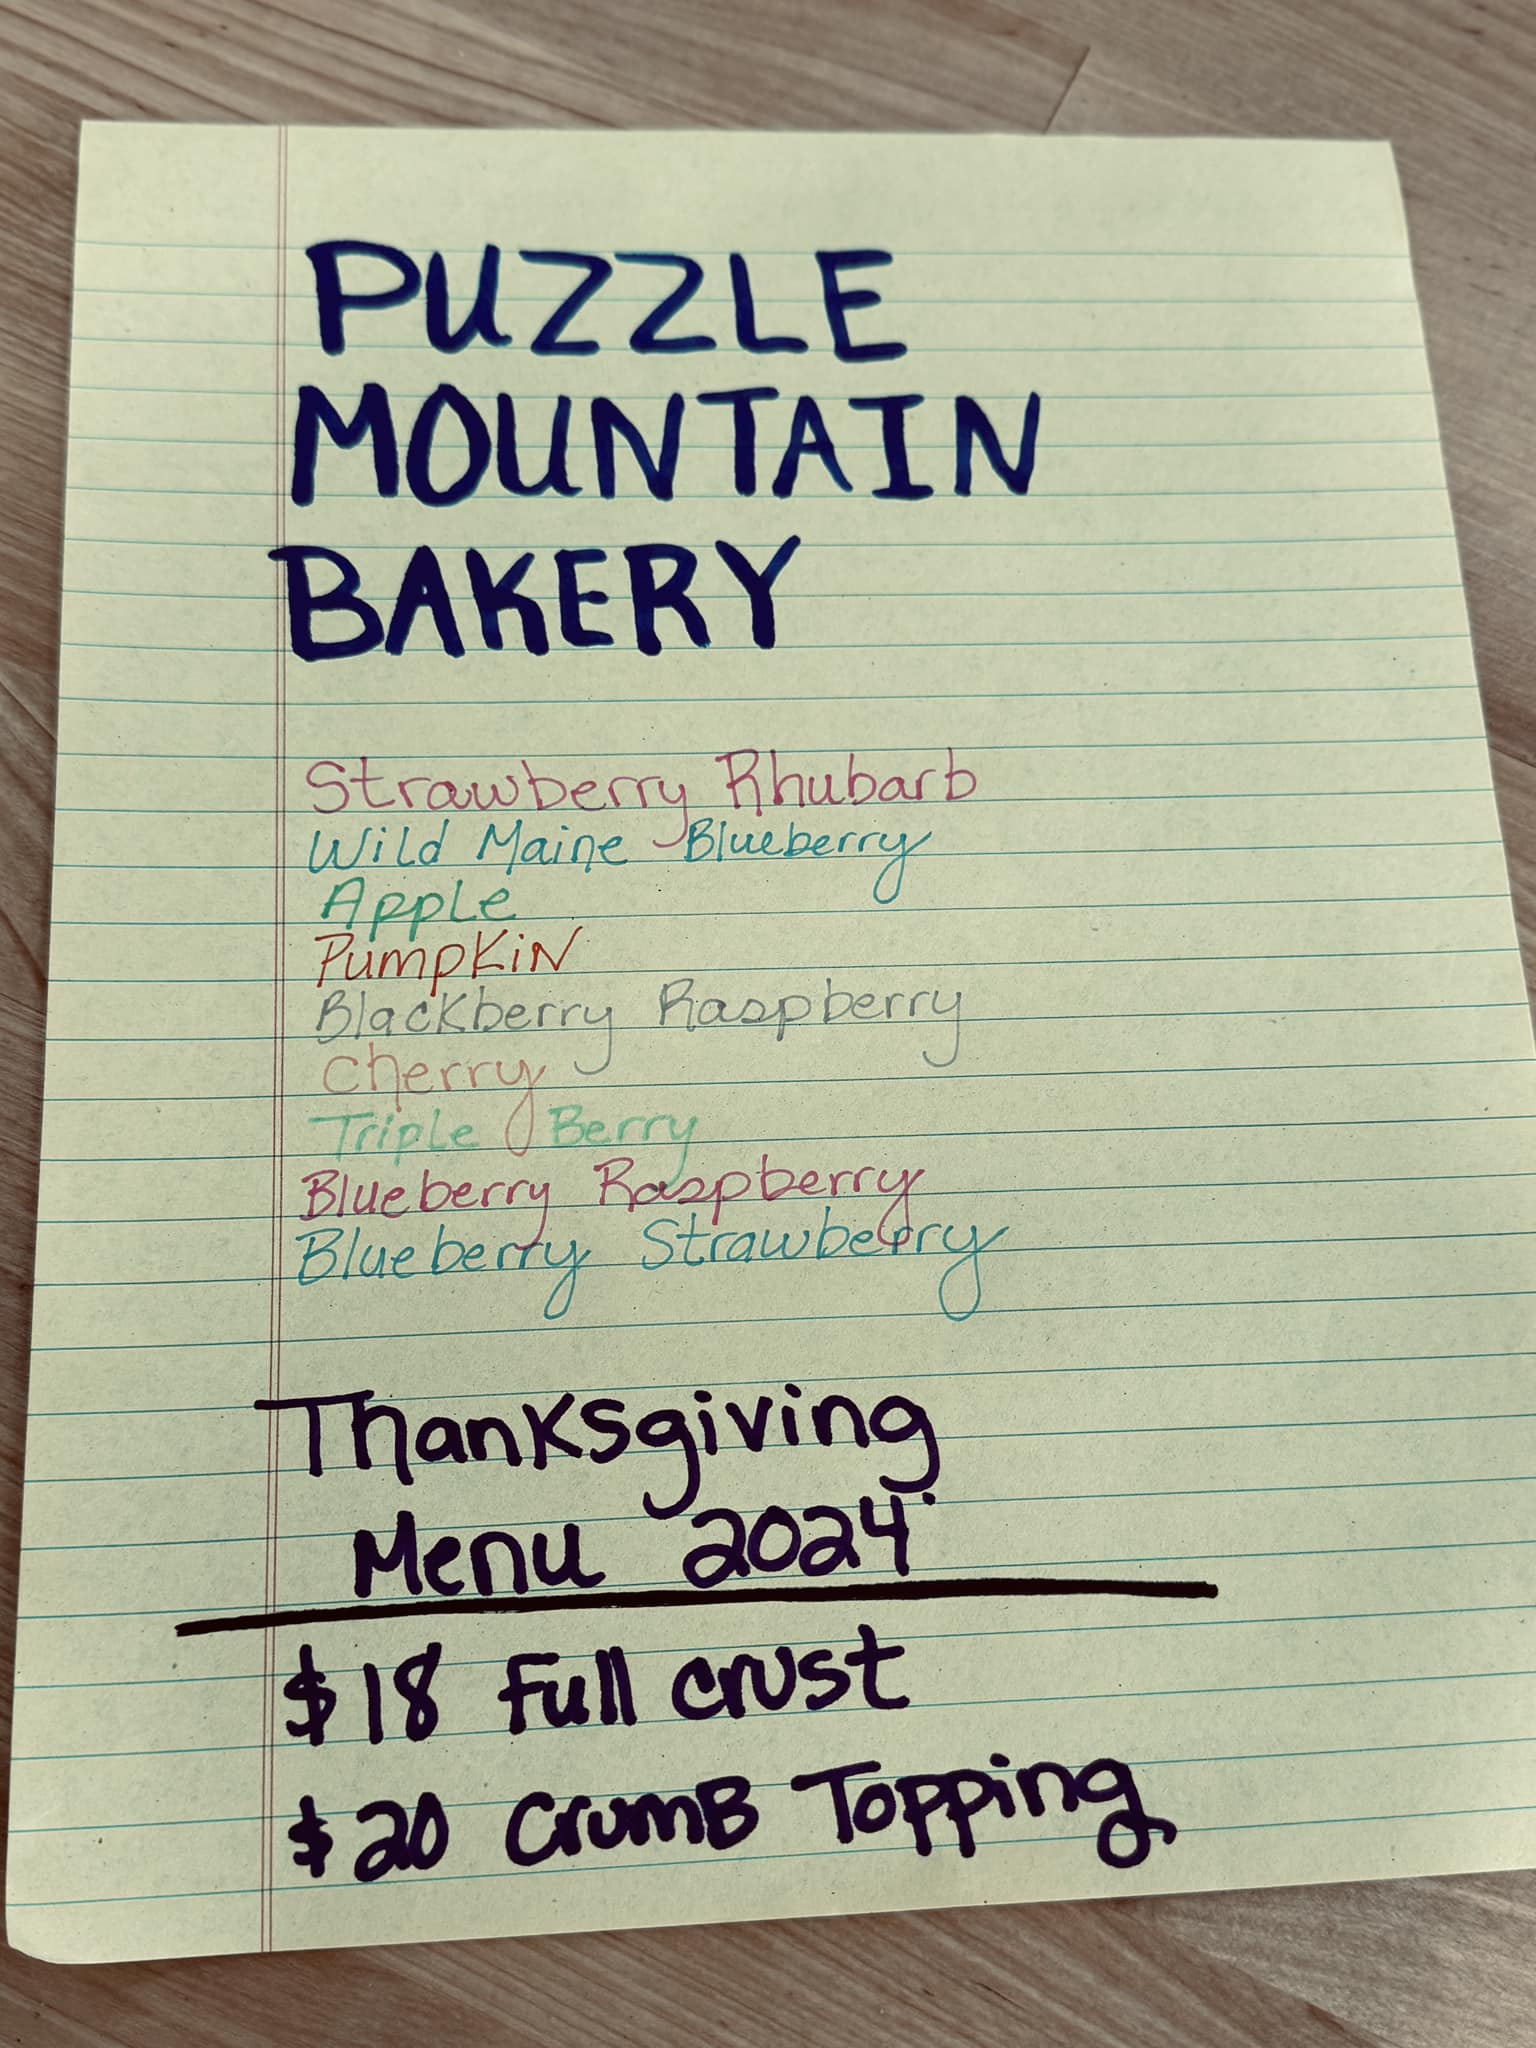 PUZZLE
MOUNTAIN
BAKERY
Strawberry Rhubarb
Wild Maine Blueberry
Apple
PumpkiN
Blackberry Raspberry
Cherry
Triple Berry
Blueberry Raspberry
Blueberry Strawberry
Thanksgiving
Menu 2024
$18 Full crust
$20 CrumB Topping